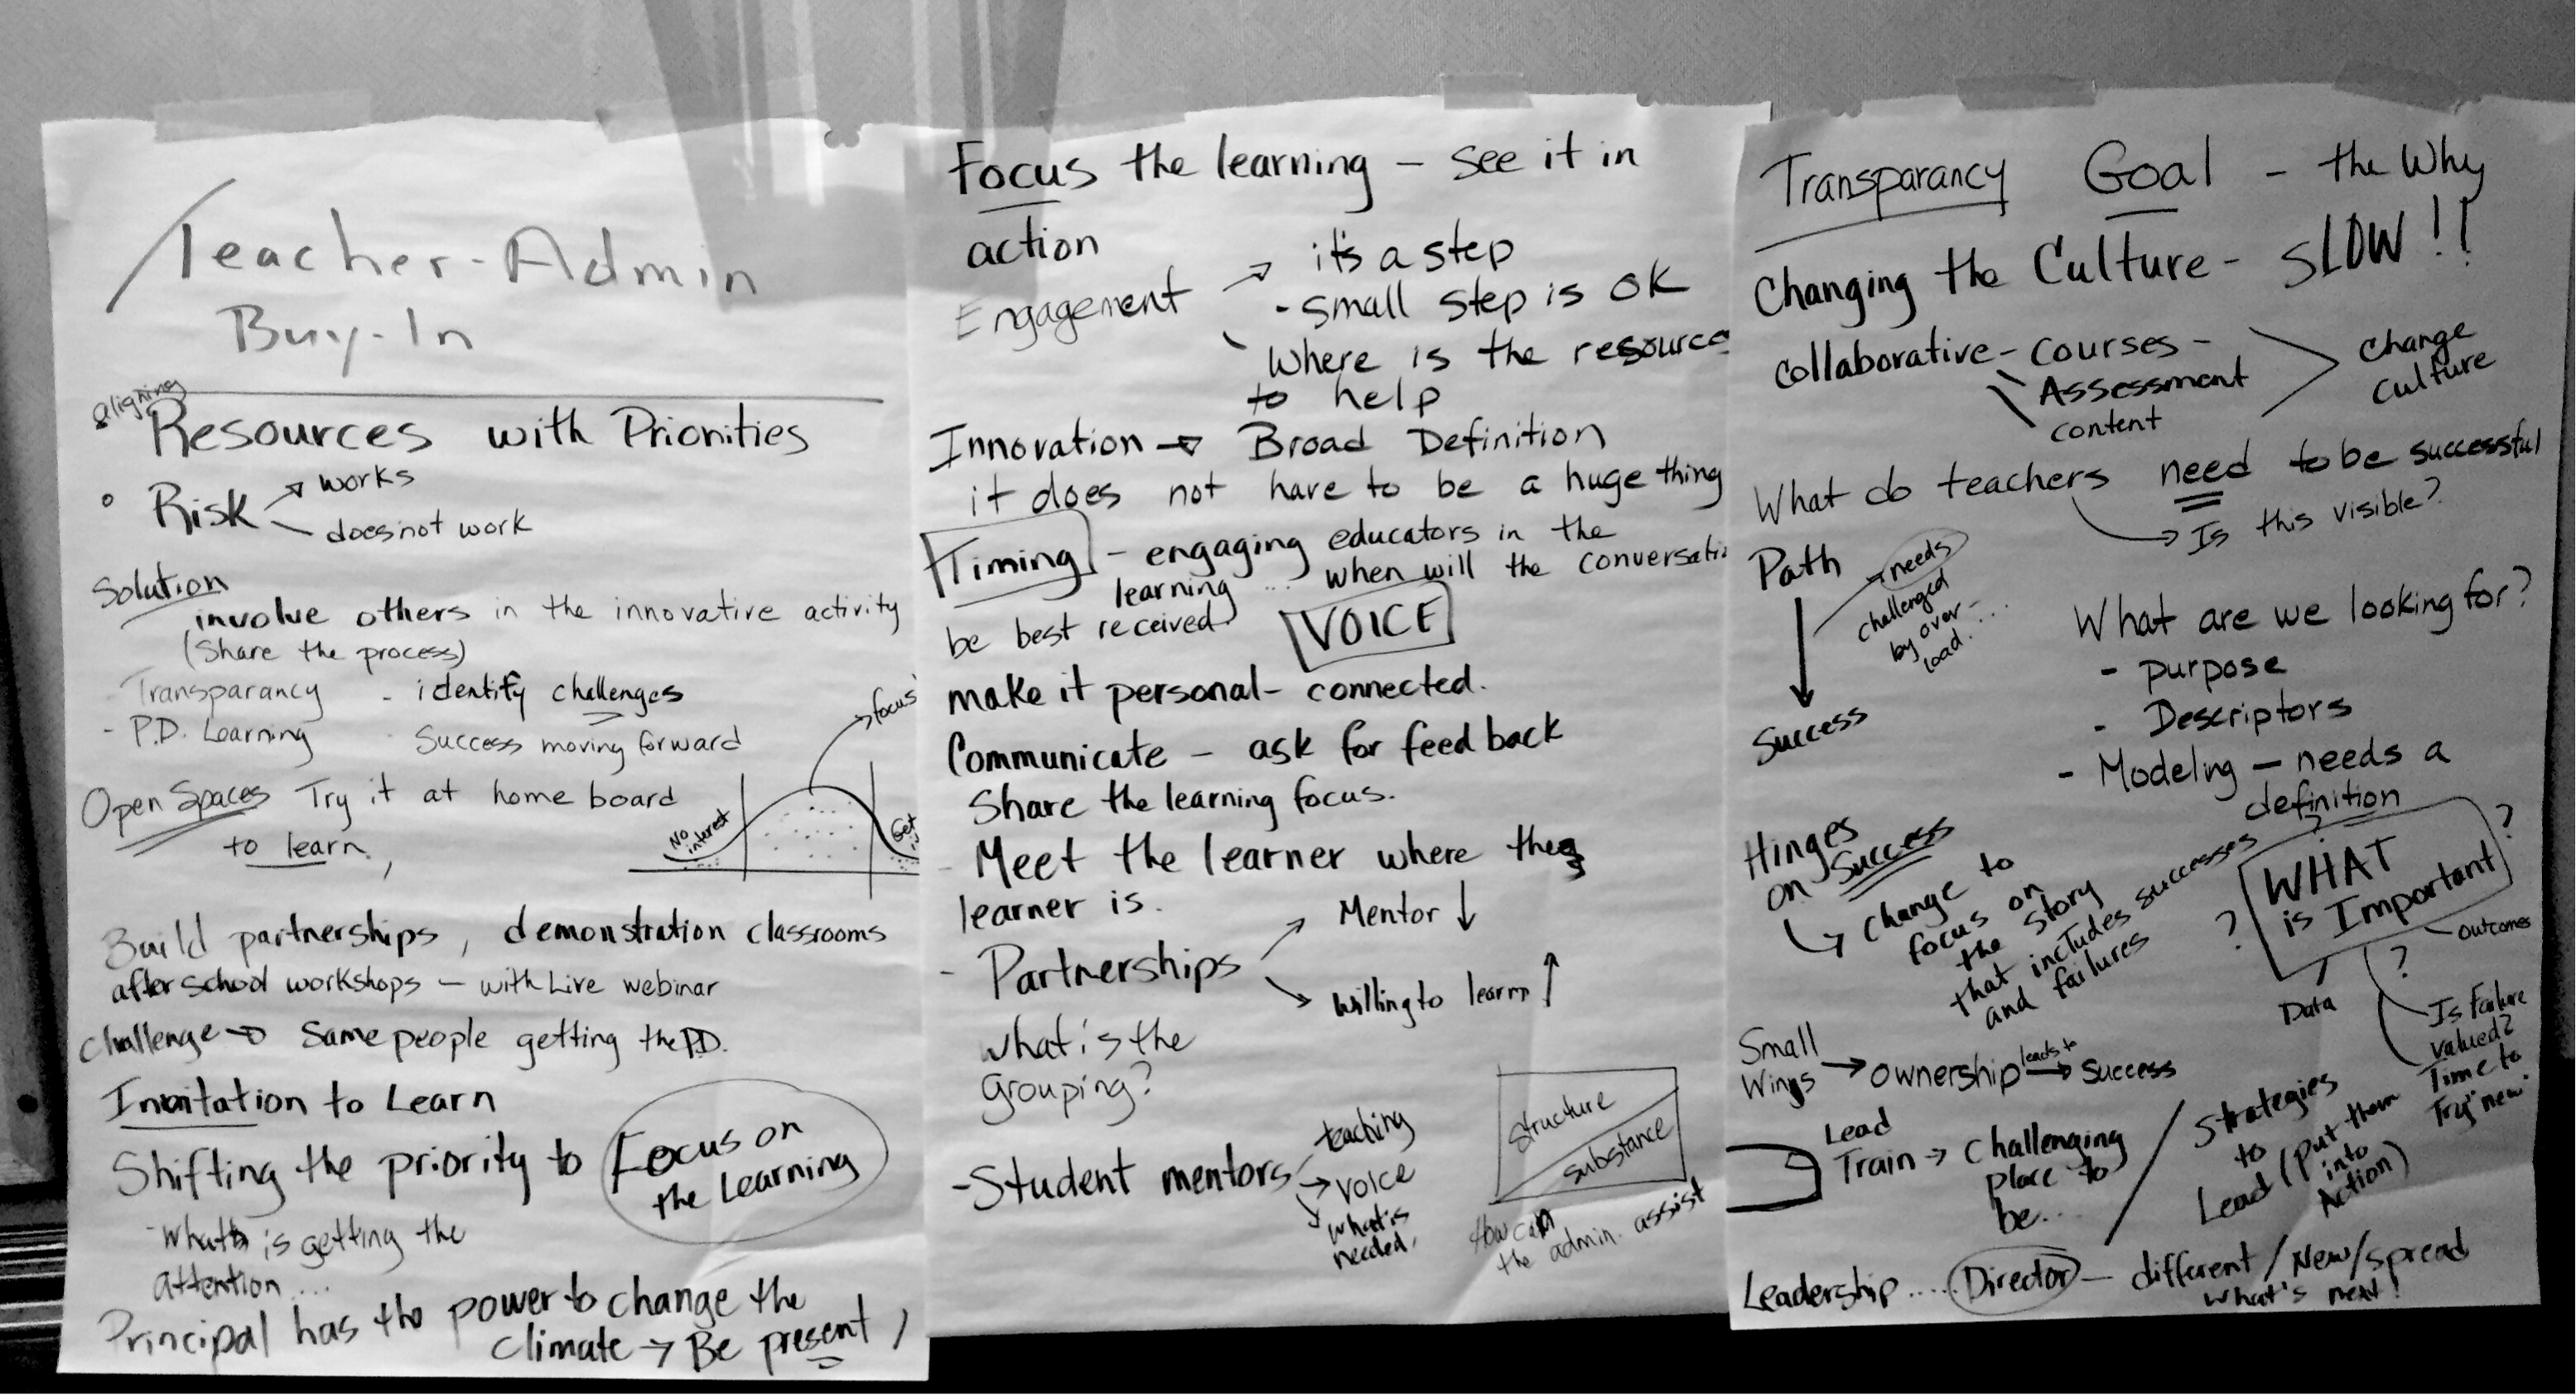 Teacher-Admin
Buy-In
aligning
• Resources with Priorities
° Risk
works
does not work
Solution
involve others in the innovative activity
(Share the process)
Transparancy - identify challenges
- P.D. Learning - Success moving forward
focus
Open Spaces Try it at home board
to learn,
No interest
Get
Build partnerships, demonstration classrooms
after school workshops - with Live webinar
Challenge → Same people getting the P.D.
Invitation to Learn
Shifting the priority to Focus on
the Learning
- what is getting the
attention ...
Principal has the power to change the
climate → Be present
Focus the learning - see it in
action
Engagement
it's a step
- small step is ok
where is the resource
to help
Innovation → Broad Definition
it does not have to be a huge thing
Timing - engaging educators in the
learning ... when will the conversati
be best received
VOICE
make it personal - connected.
Communicate - ask for feedback
Share the learning focus.
- Meet the learner where the
learner is.
- Partnerships
Mentor ↓
willing to learn ↑
what is the
grouping?
- Student mentors
teaching
→ voice
what's
needed.
Structure
substance
How can
the admin. assist
Transparancy Goal - the Why
Changing the Culture - SLOW!!
Collaborative - courses -
Assessment
content
Change
culture
What do teachers need to be successful
→ Is this visible?
Path
→ needs
challenged
by over
load....
Success
What are we looking for?
- purpose
- Descriptors
- Modeling - needs a
definition
Hinges
on Success
↳ Change to
focus on
the story
that includes successes
and failures
? ? ? ?
WHAT
is Important
outcomes
Data
Is Failure
valued?
Time to
Try "new"
Small
Wings → ownership leads to → Success
Lead
Train → Challenging
place to
be...
Strategies
to
Lead (put them
into
Action)
Leadership ..... Director - different / New / spread
what's next!